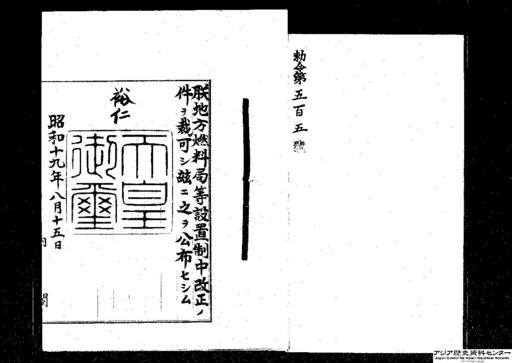 勅令第五百五號
朕地方燃料局等設置制中改正ノ
件ヲ裁可シ玆ニ之ヲ公布セシム
裕仁
天皇
御璽
昭和十九年八月十五日
内閣
アジア歴史資料センター
Japan Center for Asian Historical Records